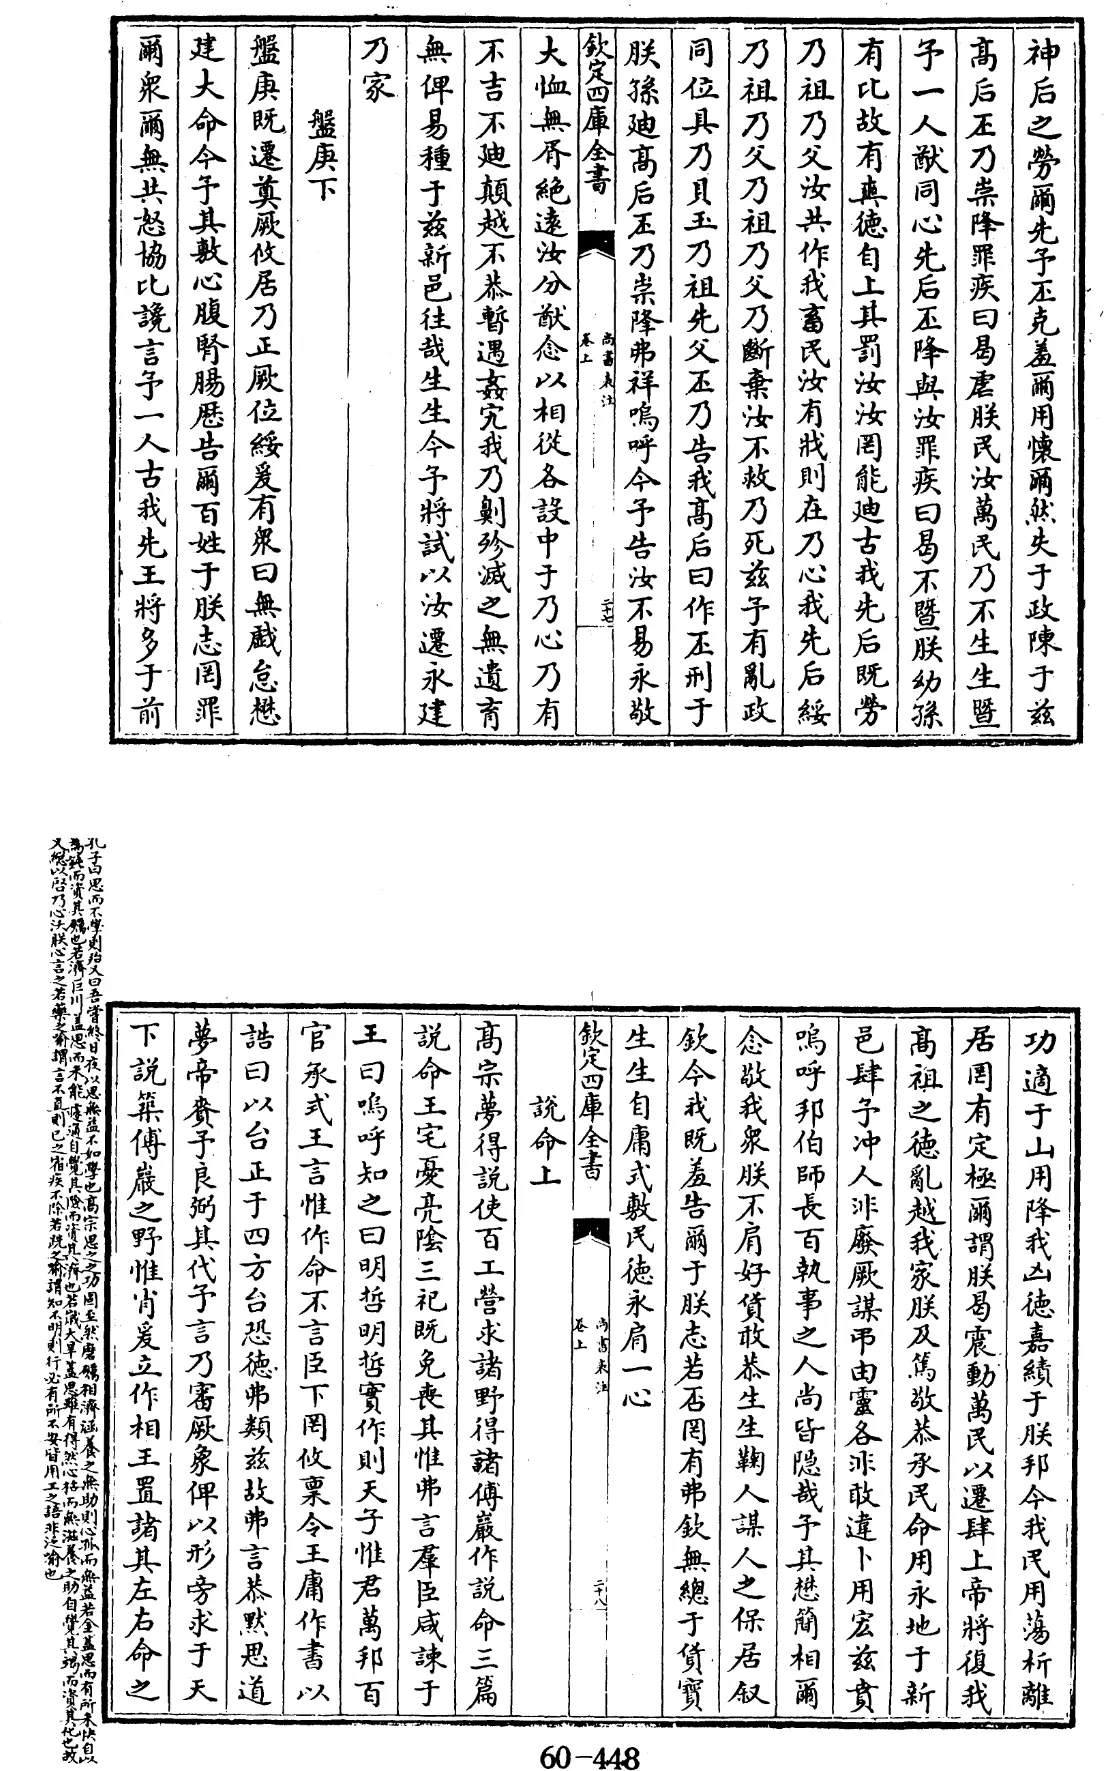 神后之勞爾先予丕克羞爾用懷爾然失于政陳于兹
髙后丕乃崇降罪疾曰曷虐朕民汝萬民乃不生生暨
予一人猷同心先后丕降與汝罪疾曰曷不暨朕幼孫
有比故有爽德自上其罰汝汝罔能迪古我先后既勞
乃祖乃父汝共作我畜民汝有戕則在乃心我先后綏
乃祖乃父乃祖乃父乃斷棄汝不救乃死兹予有亂政
同位具乃貝玉乃祖先父丕乃告我髙后曰作丕刑于
朕孫迪髙后丕乃崇降弗祥嗚呼今予告汝不易永敬
欽定四庫全書
尚書表注
卷上
二十七
大恤無胥絶遠汝分猷念以相從各設中于乃心乃有
不吉不迪顛越不恭暫遇姦宄我乃劓殄滅之無遺育
無俾易種于兹新邑往哉生生今予將試以汝遷永建
乃家
盤庚下
盤庚既遷奠厥攸居乃正厥位綏爰有衆曰無戲怠懋
建大命今予其敷心腹腎腸歴告爾百姓于朕志罔罪
爾衆爾無共怒協比讒言予一人古我先王將多于前
功適于山用降我凶德嘉績于朕邦今我民用蕩析離
居罔有定極爾謂朕曷震動萬民以遷肆上帝將復我
髙祖之德亂越我家朕及篤敬恭承民命用永地于新
邑肆予冲人非廢厥謀弔由靈各非敢違卜用宏兹賁
嗚呼邦伯師長百執事之人尚皆隠哉予其懋簡相爾
念敬我衆朕不肩好貨敢恭生生鞠人謀人之保居叙
欽今我既羞告爾于朕志若否罔有弗欽無總于貨寶
生生自庸式敷民德永肩一心
欽定四庫全書
尚書表注
卷上
二十八
說命上
髙宗夢得說使百工營求諸野得諸傅巖作說命三篇
說命王宅憂亮陰三祀既免喪其惟弗言羣臣咸諫于
王曰嗚呼知之曰明哲明哲實作則天子惟君萬邦百
官承式王言惟作命不言臣下罔攸禀令王庸作書以
誥曰以台正于四方台恐德弗類兹故弗言恭默思道
夢帝賚予良弼其代予言乃審厥象俾以形旁求于天
下說築傅巖之野惟肖爰立作相王置諸其左右命之
孔子曰思而不學則殆又曰吾嘗終日夜以思無益不如學也髙宗思之之功固至然磨礪相濟涵養之無助則心亦而無益若金蓋思而有所未快自以
爲鈍而資其礪也若濟巨川蓋思而未能遽通自覺其險而資其濟也若歲大旱蓋思雖有得然心枯而無滋養之助自覺其竭而資其化也故
又總以啓乃心沃朕心言之若藥之喻謂言不直則已之宿疾不除若跣之喻謂知不明則行必有所不安皆用工之語非泛喻也
60-448